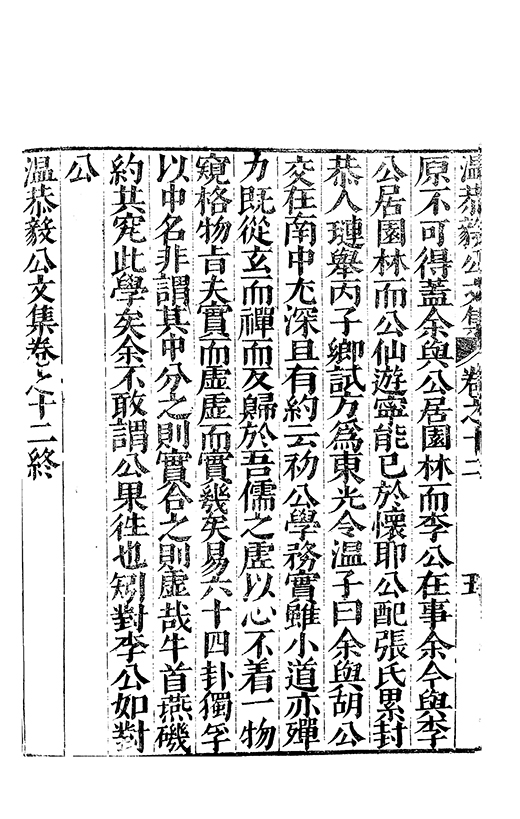 溫恭毅公文集 卷之十二
原不可得蓋余與公居園林而李公在事余今與李
公居園林而公仙遊寧能已於懷耶公配張氏累封
恭人璉舉丙子鄉試方爲東光令温子曰余與胡公
交在南中尤深且有約云初公學務實雖小道亦殫
力旣從玄而禪而友歸於吾儒之虛以心不着一物
窺格物旨夫實而虛虛而實幾矣易六十四卦獨孚
以中名非謂其中分之則實合之則虛哉牛首燕磯
約共究此學矣余不敢謂公果徃也矧對李公如對
公
温恭毅公文集卷之十二終